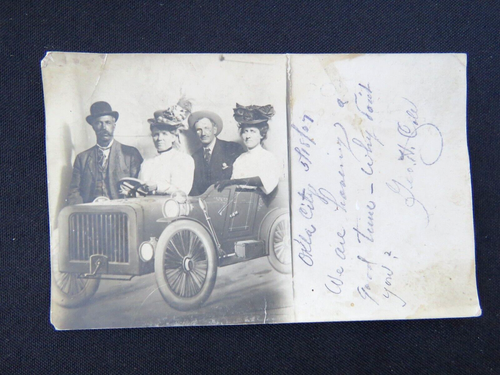 Okla City 5/18/07
We are having a
good time - Why don't
you?
Geo. H.